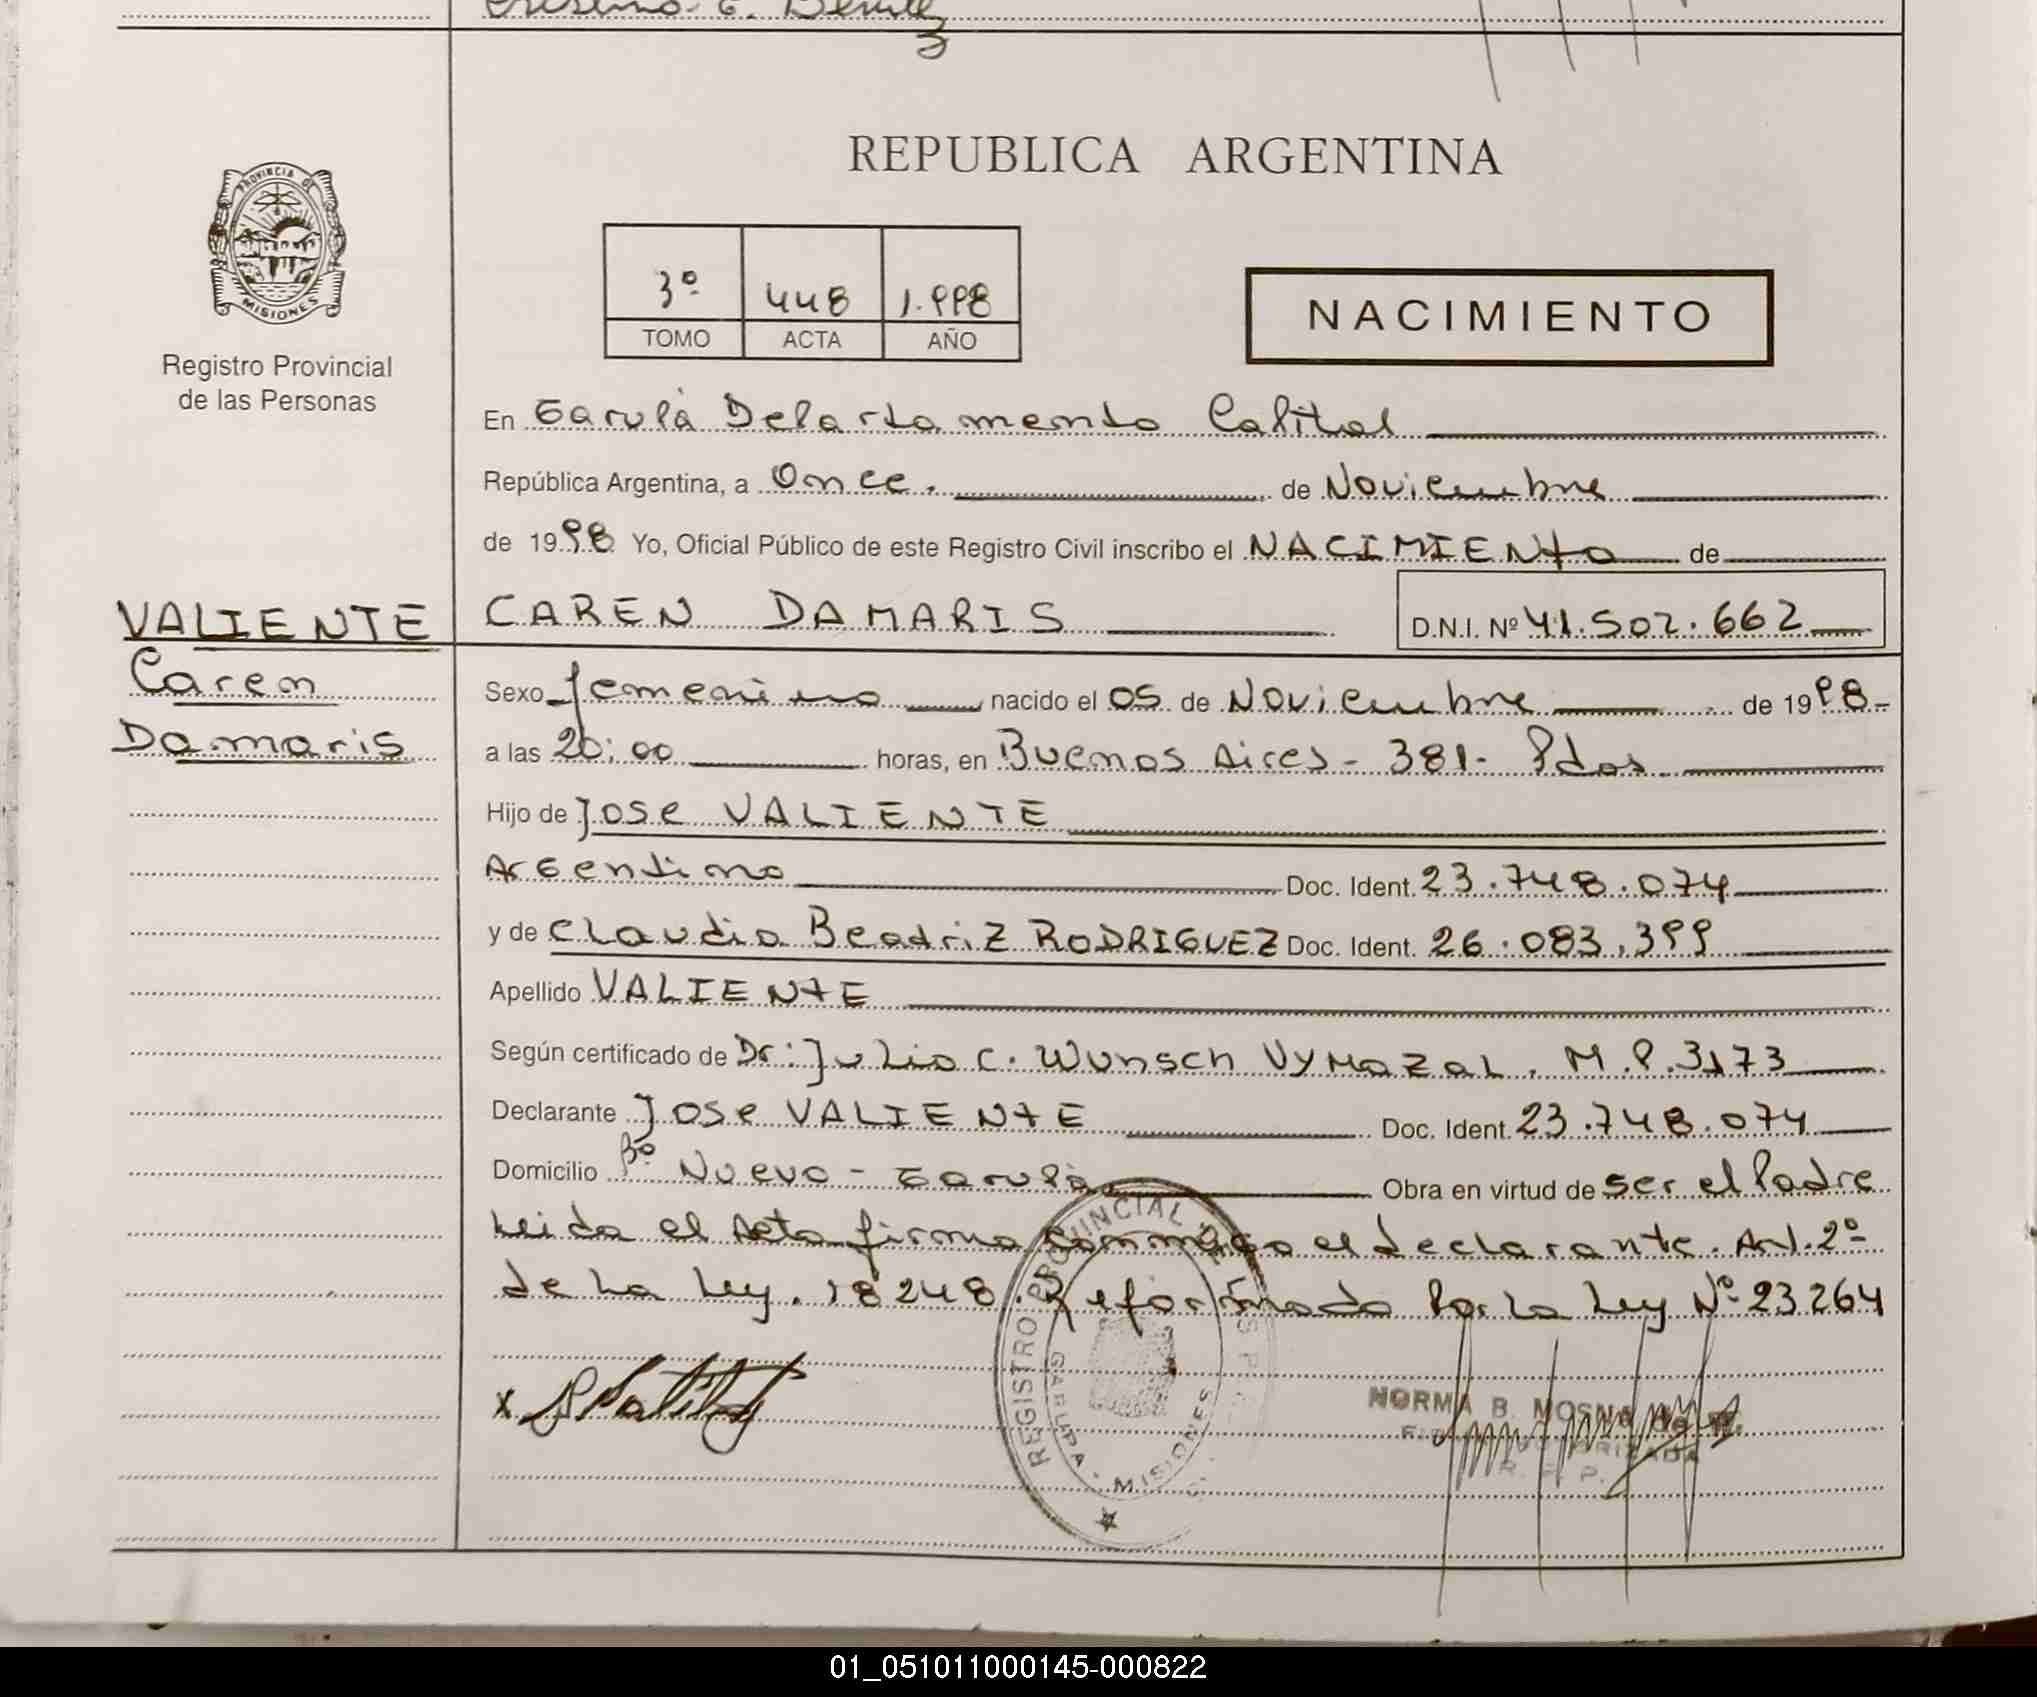 REPUBLICA ARGENTINA
PROVINCIA DE
MISIONES
Registro Provincial
de las Personas
3º 448 1.998
TOMO ACTA AÑO
NACIMIENTO
En Garupá Departamento Capital
República Argentina, a Once. de Noviembre
de 1998 Yo, Oficial Público de este Registro Civil inscribo el NACIMIENTO de
VALIENTE
Caren
Damaris
CAREN DAMARIS D.N.I. Nº 41.502.662
Sexo femenino nacido el 05 de Noviembre de 1998-
a las 20:00 horas, en Buenos Aires - 381- Pdas
Hijo de Jose VALIENTE
Argentino Doc. Ident. 23.748.074
y de Claudia Beatriz RODRIGUEZ Doc. Ident. 26.083.399
Apellido VALIENTE
Según certificado de Dr: Julio C. Wunsch Vymazal. M.P.3173
Declarante Jose VALIENTE Doc. Ident. 23.748.074
Domicilio Bº Nuevo - Garupá Obra en virtud de ser el Padre
Leida el Acta firma conmigo el declarante. Art. 2º
de La Ley. 18248. Reformado Por La Ley Nº 23264
REGISTRO PROVINCIAL DE
GARUPA - MISIONES
x
NORMA B. MOSNA de
R. P. P.
01_051011000145-000822